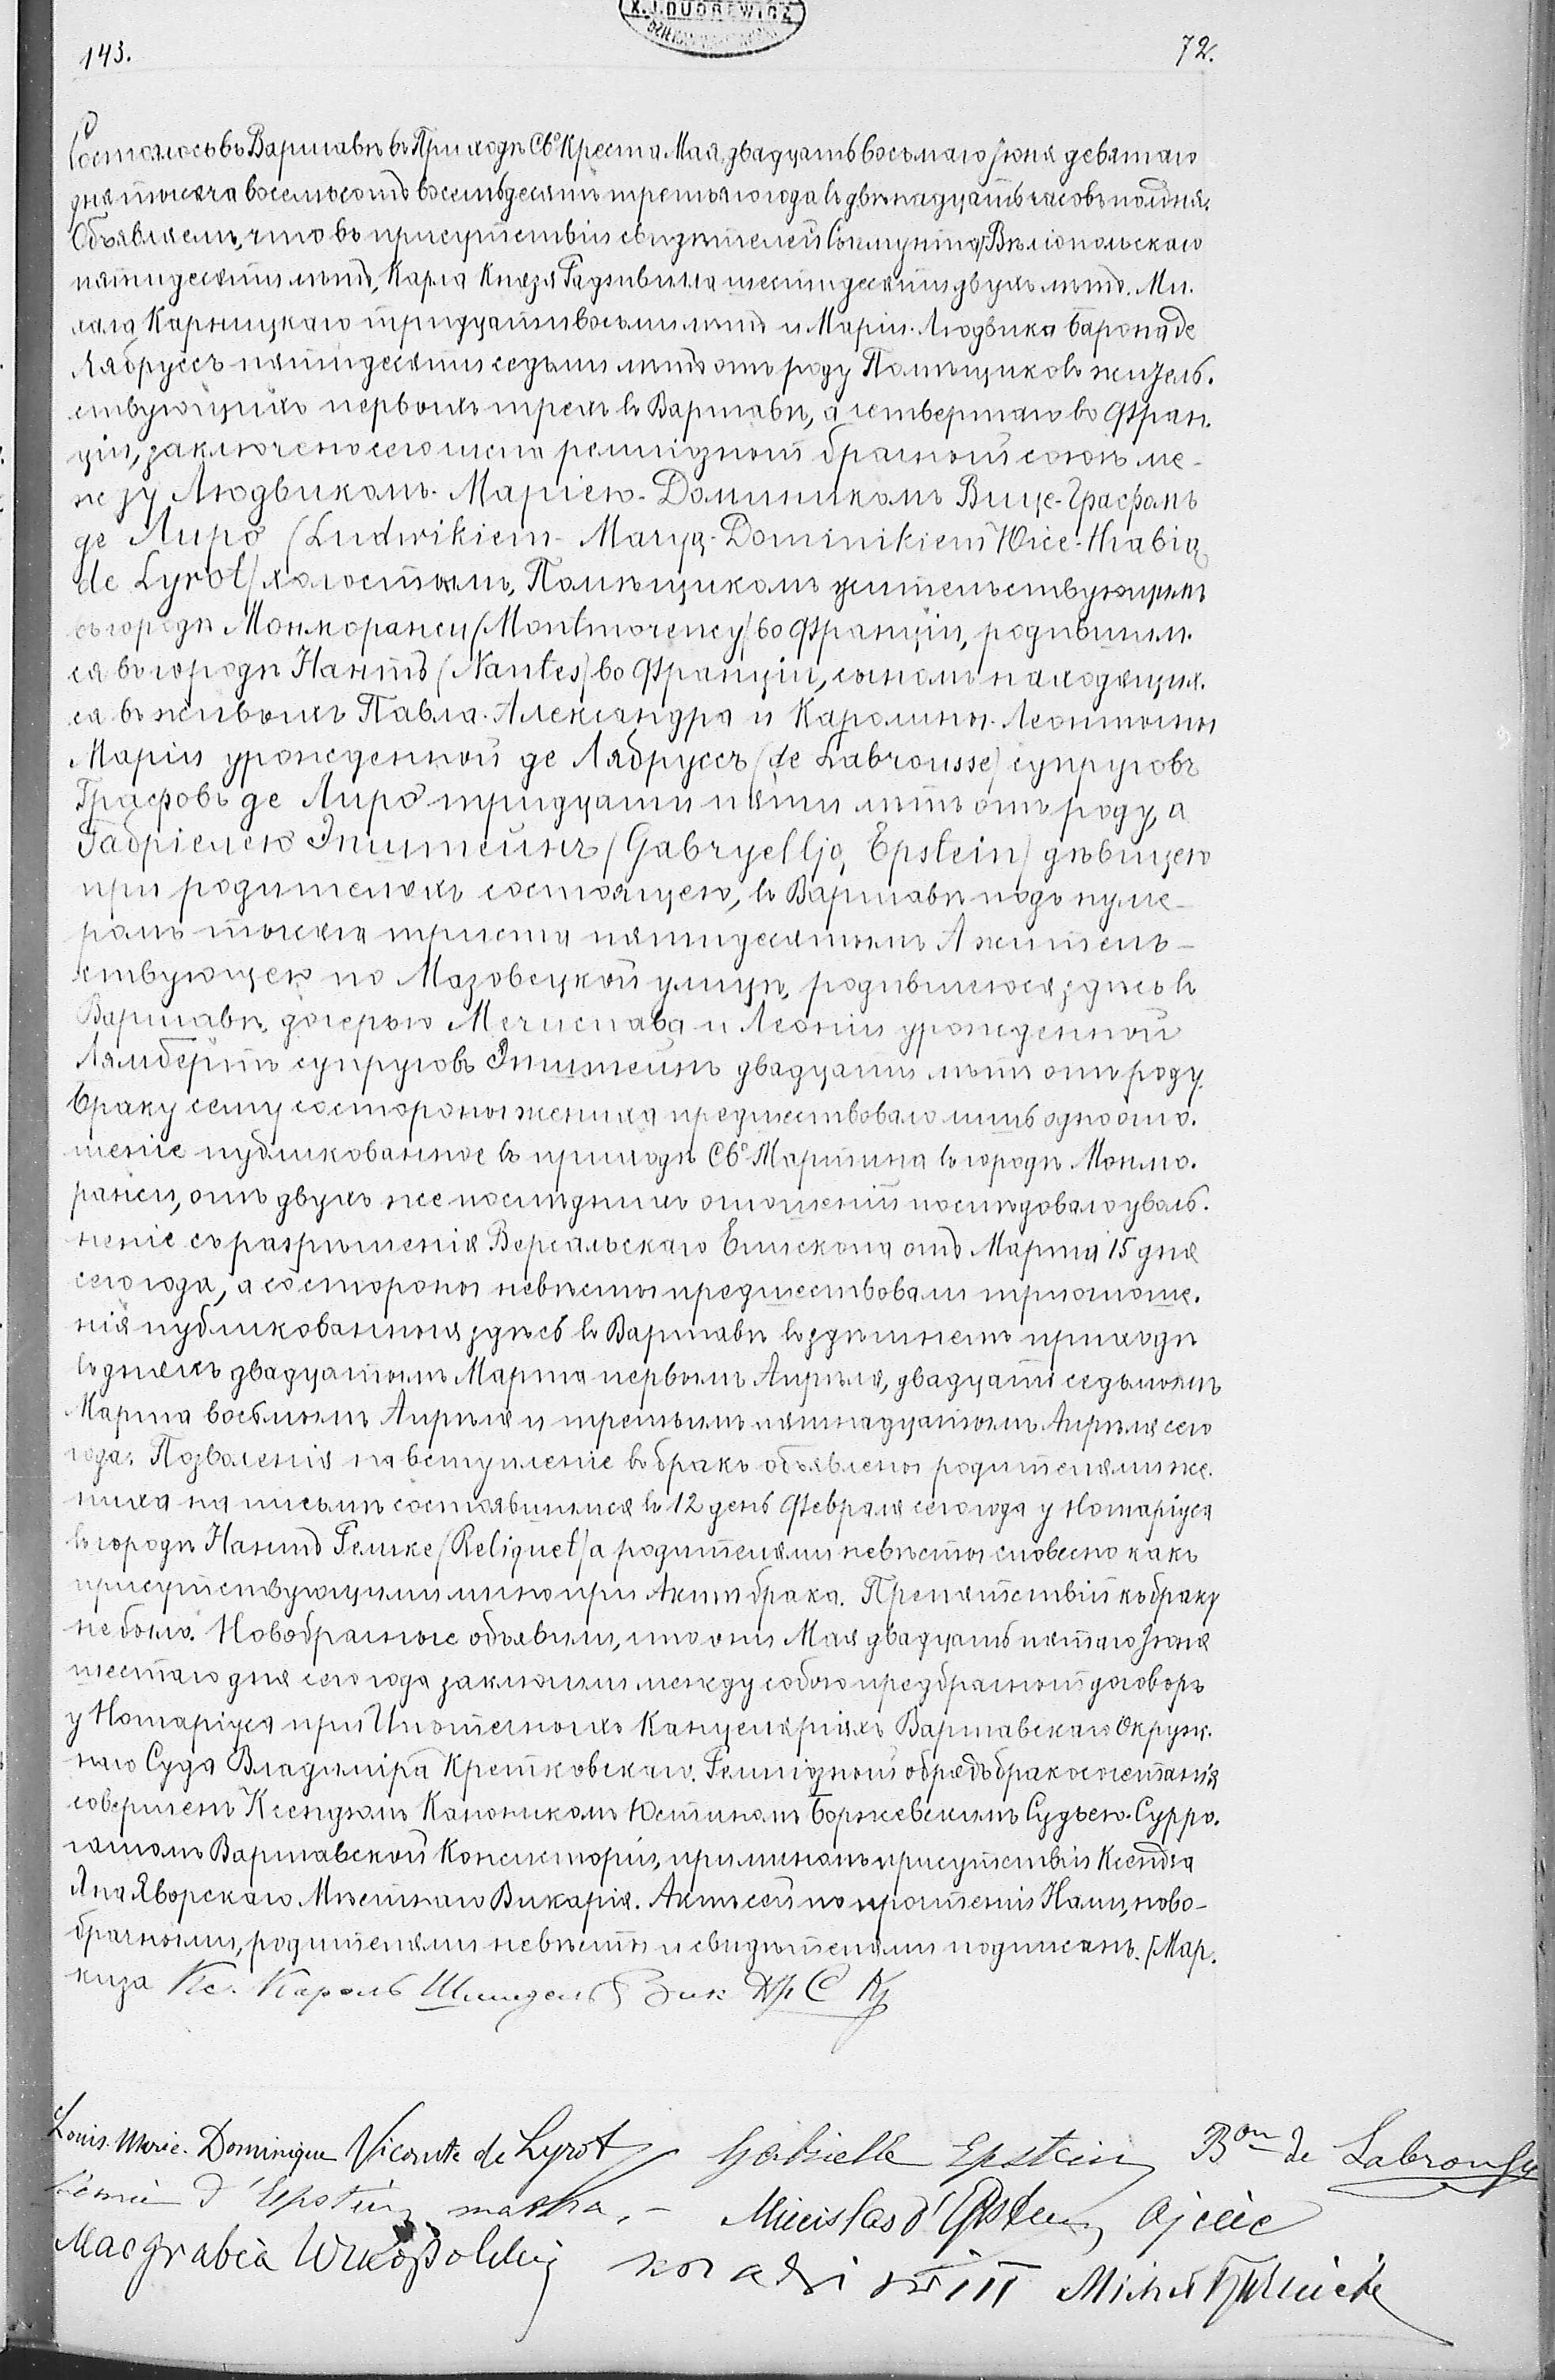 X.J.DUDREWICZ
143. 72.
Состоялось въ Варшавѣ въ Приходѣ Св° Креста Мая двадцать восьмаго Іюня девятаго
дня тысяча восемьсотъ восемьдесятъ третьяго года въ двѣнадцать часовъ полдня.
Объявляемъ, что въ присутствіи свидѣтелей Сигмунта Вѣліопольскаго
пятидесяти лѣтъ, Карла Князя Радзивила шестидесяти двухъ лѣтъ. Ми-
хала Карницкаго тридцати восьми лѣтъ и Маріи-Людвика барона де
Лябруссъ пятидесяти седьми лѣтъ отъ роду Помѣщиковъ житель-
ствующихъ первыхъ трехъ въ Варшавѣ, а четвертаго во Фран-
ціи, заключено сего числа религіозный брачный союзъ ме-
жду Людвикомъ-Маріею-Доминикомъ Вице-Графомъ
де Лиро (Ludwikiem-Maryą-Dominikiem Wice-Hrabią
de Lyrot) холостымъ, Помѣщикомъ жительствующимъ
въ городѣ Монморанси (Montmorency) во Франціи, родившим-
ся въ городѣ Нантъ (Nantes) во Франціи, сыномъ находящих-
ся въ живыхъ Павла-Александра и Каролины-Леонтины
Маріи урожденной де Лябруссъ (de Labrousse) супруговъ
Графовъ де Лиро тридцати пяти лѣтъ отъ роду, а
Габріелею Эпштейнъ (Gabryellją Epstein) дѣвицею
при родителяхъ состоящею, въ Варшавѣ подъ нуме-
ромъ тысяча триста пятидесятымъ А житель-
ствующею по Мазовецкой улицѣ, родившеюся здѣсь въ
Варшавѣ, дочерью Мечислава и Леоніи урожденной
Лямбертъ супруговъ Эпштейнъ двадцати лѣтъ отъ роду.
Браку сему со стороны жениха предшествовало лишь одно огла-
шеніе публикованное въ приходѣ Св° Мартина въ городѣ Монмо-
ранси, отъ двухъ же послѣднихъ оглашеній послѣдовало уволь-
неніе съ разрѣшенія Версальскаго Епископа отъ Марта 15 дня
сего года, а со стороны невѣсты предшествовали три оглаше-
нія публикованныя здѣсь въ Варшавѣ въ здѣшнемъ приходѣ
въ дняхъ двадцатомъ Марта первомъ Апрѣля, двадцать седьмомъ
Марта восьмомъ Апрѣля и третьимъ пятнадцатомъ Апрѣля сего
года. Позволенія на вступленіе въ бракъ объявлены родителями же-
ниха на письмѣ состоявшимся въ 12 день Февраля сего года у Нотаріуса
въ городѣ Нантъ Релике (Reliquet) а родителями невѣсты словесно какъ
присутствующими лично при Актѣ брака. Препятствій къ браку
не было. Новобрачные объявили, что они Мая двадцать пятаго Іюня
шестаго дня сего года заключили между собою предбрачный договоръ
у Нотаріуса при Ипотечныхъ Канцеляріяхъ Варшавскаго Окруж-
наго Суда Владиміра Кретковскаго. Религіозный обрядъ бракосочетанія
совершенъ Ксендзомъ Каноникомъ Юстиномъ Боржевскимъ Судьею-Сурро-
гатомъ Варшавской Консисторіи, при личномъ присутствіи Ксендза
Яна Яворскаго Мѣстнаго Викарія. Актъ сей по прочтеніи Нами, ново-
брачными, родителями невѣсты и свидѣтелями подписанъ. [Мар-
киза Кс. Кароль Шмидель Вик Пр С Кр
Louis-Marie-Dominique Vicomte de Lyrot Gabrielle Epstein Bon de Labrousse
Léonie d'Epstein matka. – Miecislas d'Epstein Ojciec
Margrabia Wielopolski Michał Karnicki